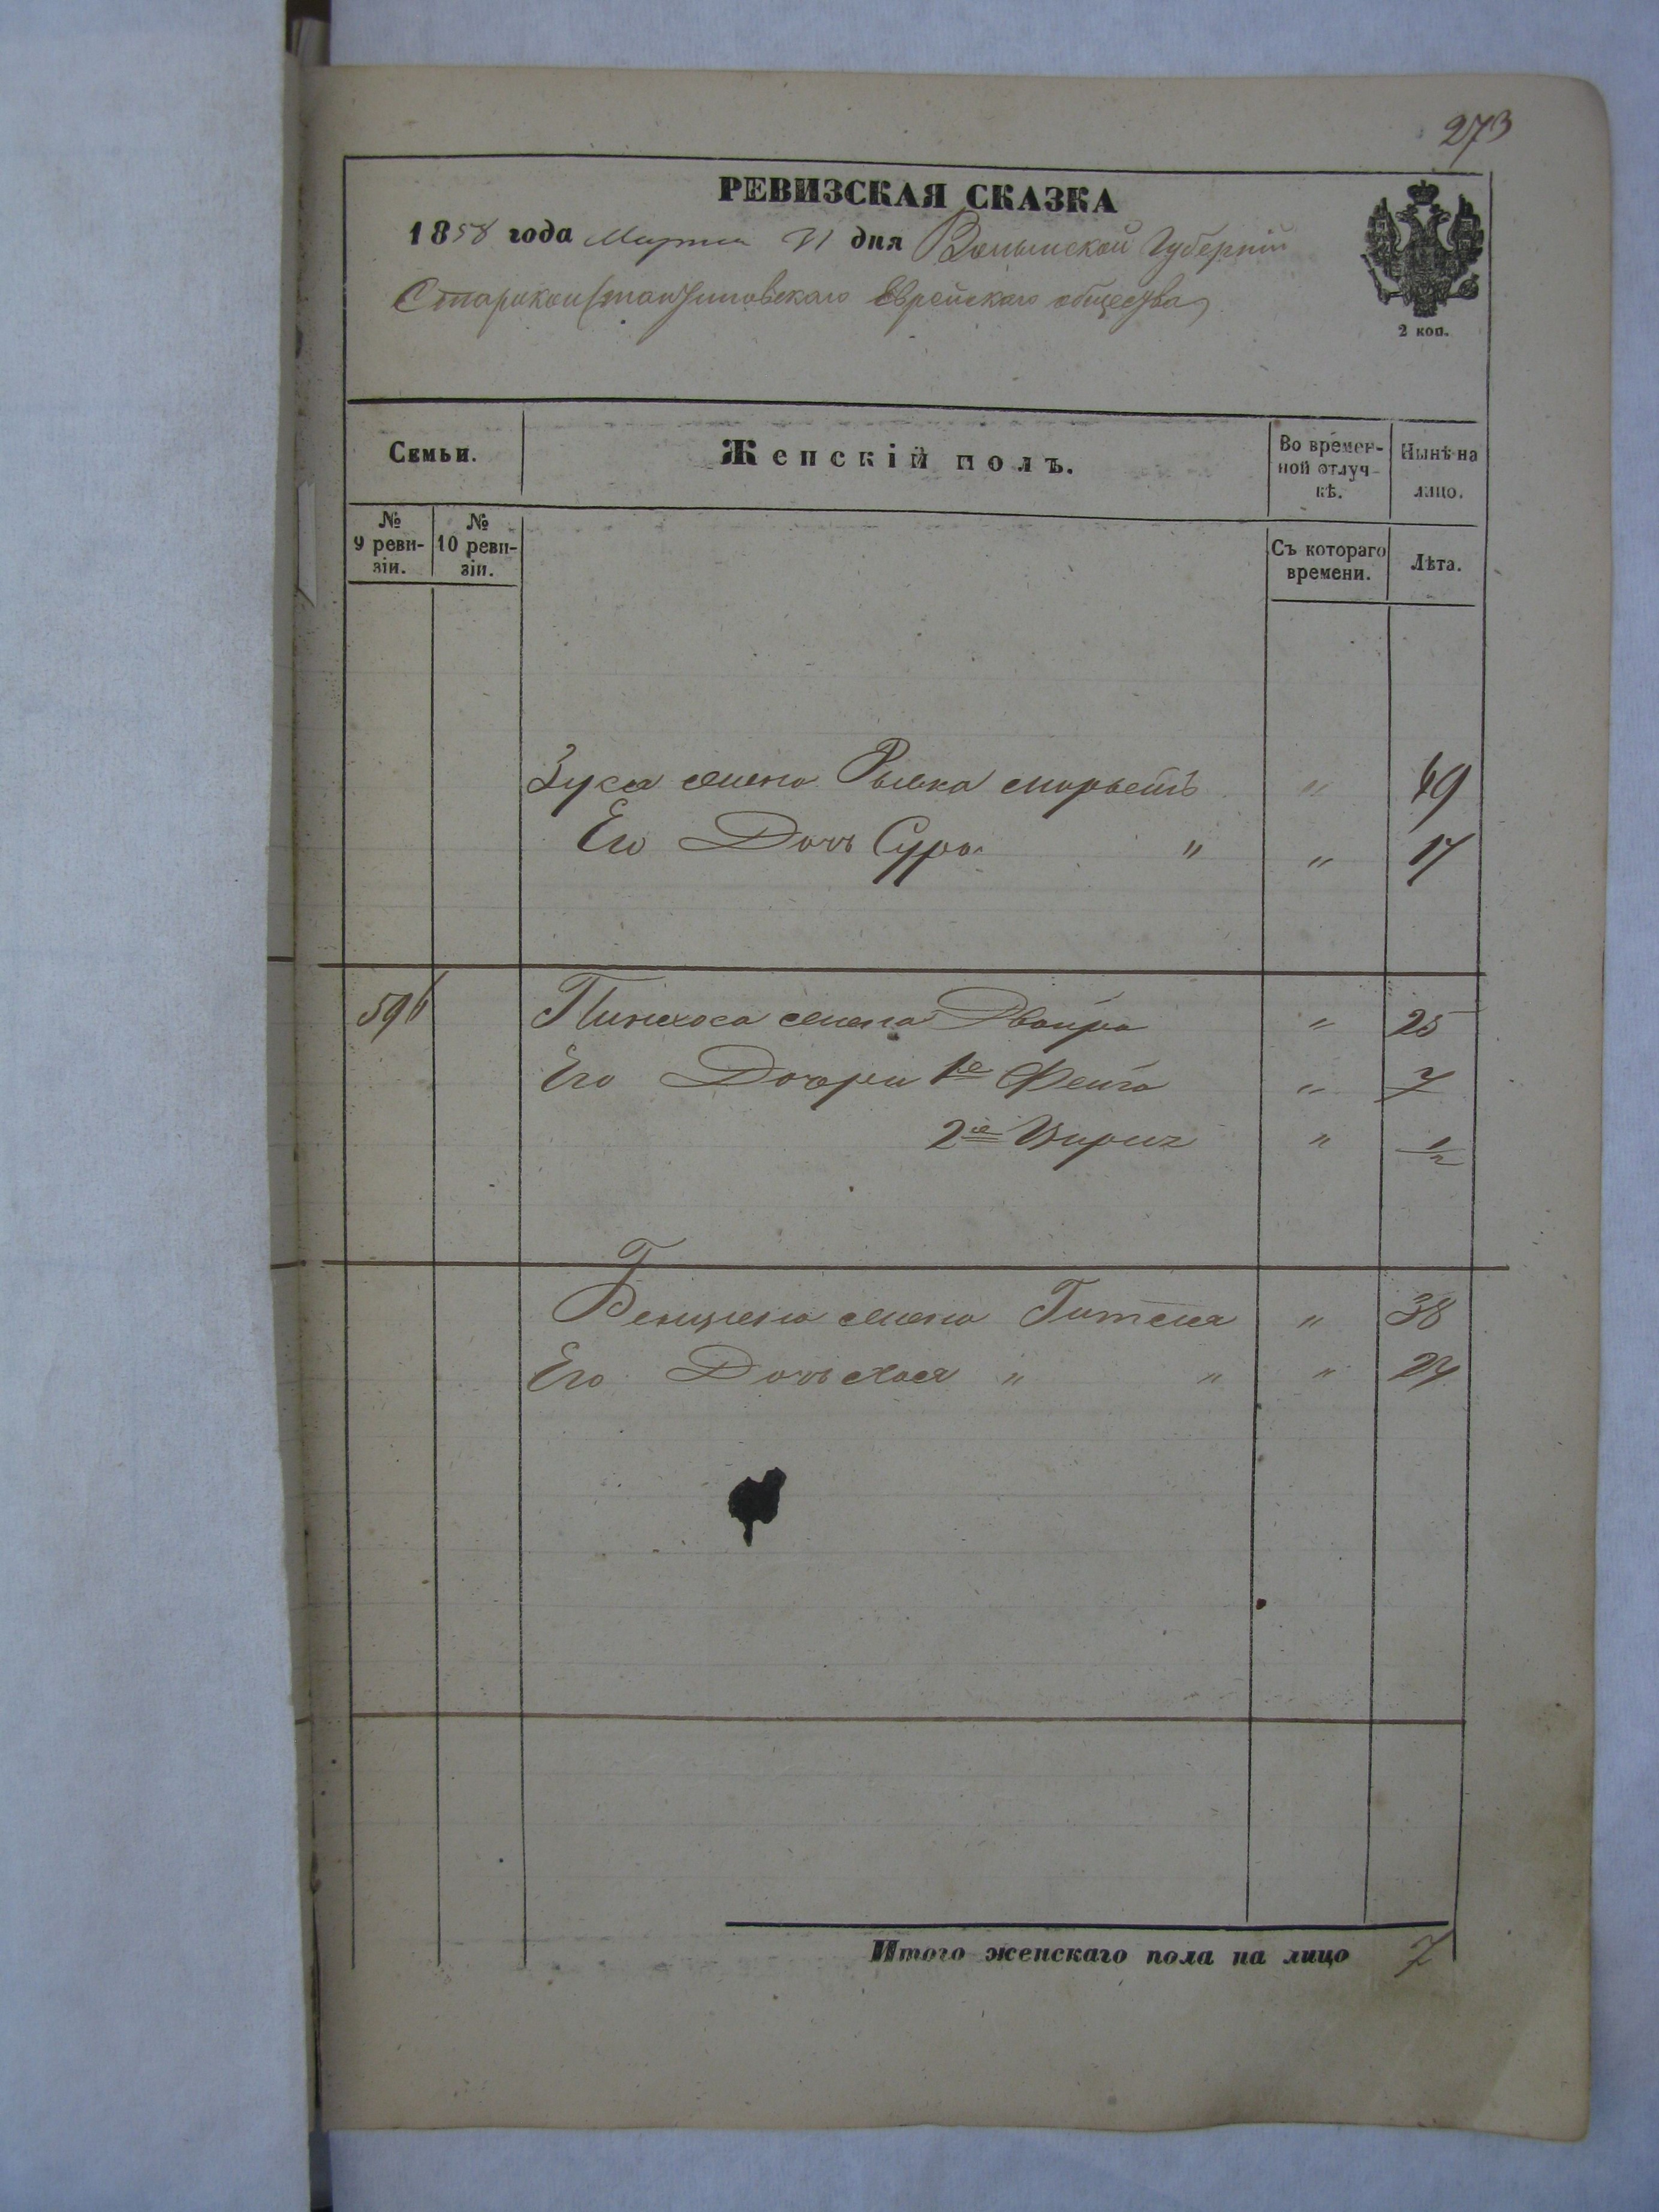 273
РЕВИЗСКАЯ СКАЗКА
1858 года Марта 31 дня Волынской Губернiи
Староконстантиновскаго Еврейскаго общества
2 коп.
Семьи.
Женскiй полъ.
Во времен-
ной отлуч-
кѣ.
Нынѣ на
лицо.
№
9 реви-
зiи.
№
10 реви-
зiи.
Съ котораго
времени.
Лѣта.
Зуся жена Рывка " 49
Его Дочь Сура " " 17
596 Пинхоса жена Двойра " 25
Его Дочери 1я Фейга " 7
2я " 1/2
жена Гитля " 38
Его Дочь Хася " " " 24
Итого женскаго пола на лицо 7